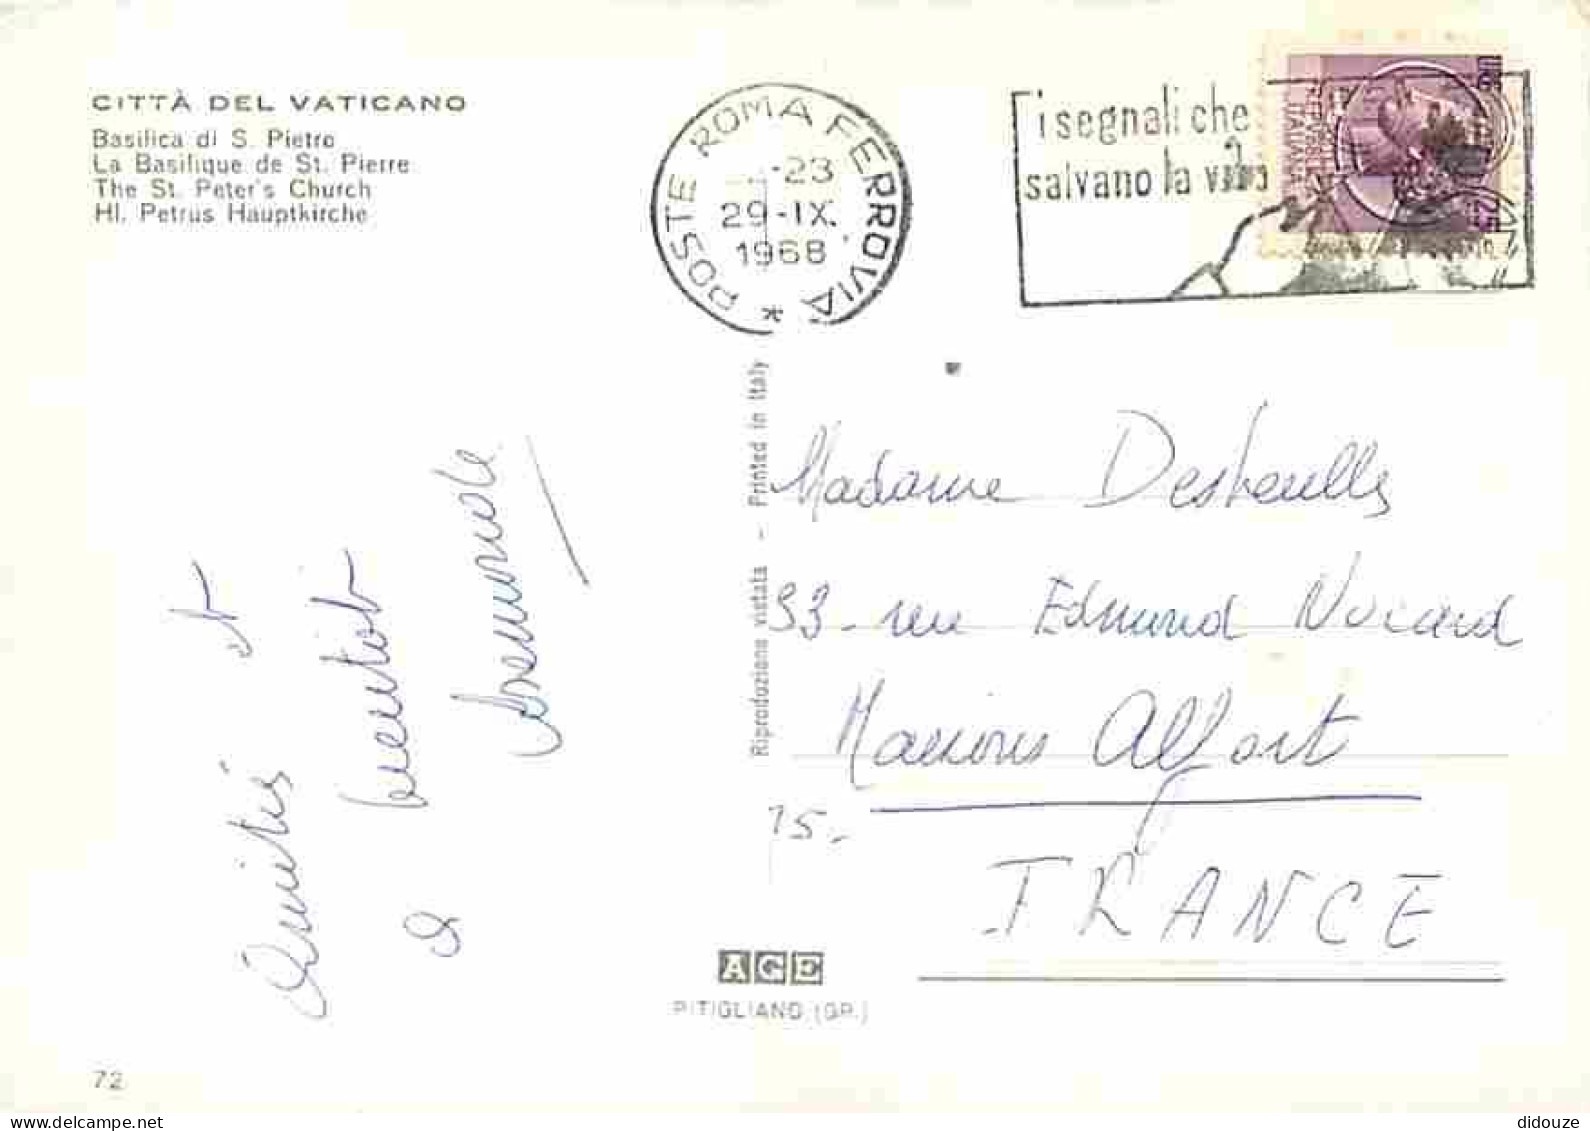 CITTÀ DEL VATICANO
Basilica di S. Pietro
La Basilique de St. Pierre
The St. Peter's Church
Hl. Petrus Hauptkirche
POSTE ROMA FERROVIA *
-23
29-IX.
1968
i segnali che
salvano la vita
LIRE
REPUBBLICA
ITALIANA
25
Amitiés
à
bientôt
Riproduzione vietata - Printed in Italy
Madame
33 - rue Edmund Nocard
Maisons Alfort
75-
FRANCE
AGE
PITIGLIANO (GR.)
72
didouze